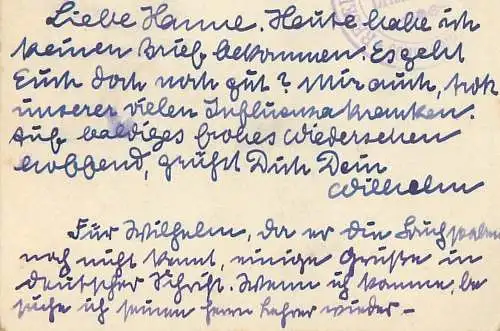 Liebe Hanne. Heute habe ich
keinen Brief bekommen. Es geht
Euch doch noch gut? Mir auch, trotz
unserer vielen Influenzakranken.
Auf baldiges frohes Wiedersehen
hoffend, grüßt Dich Dein
Wilhelm
Für Wilhelm, da er die
noch nicht kennt, einige Grüße in
deutscher Schrift. Wenn ich komme, be
suche ich seinen Herrn Lehrer wieder.-